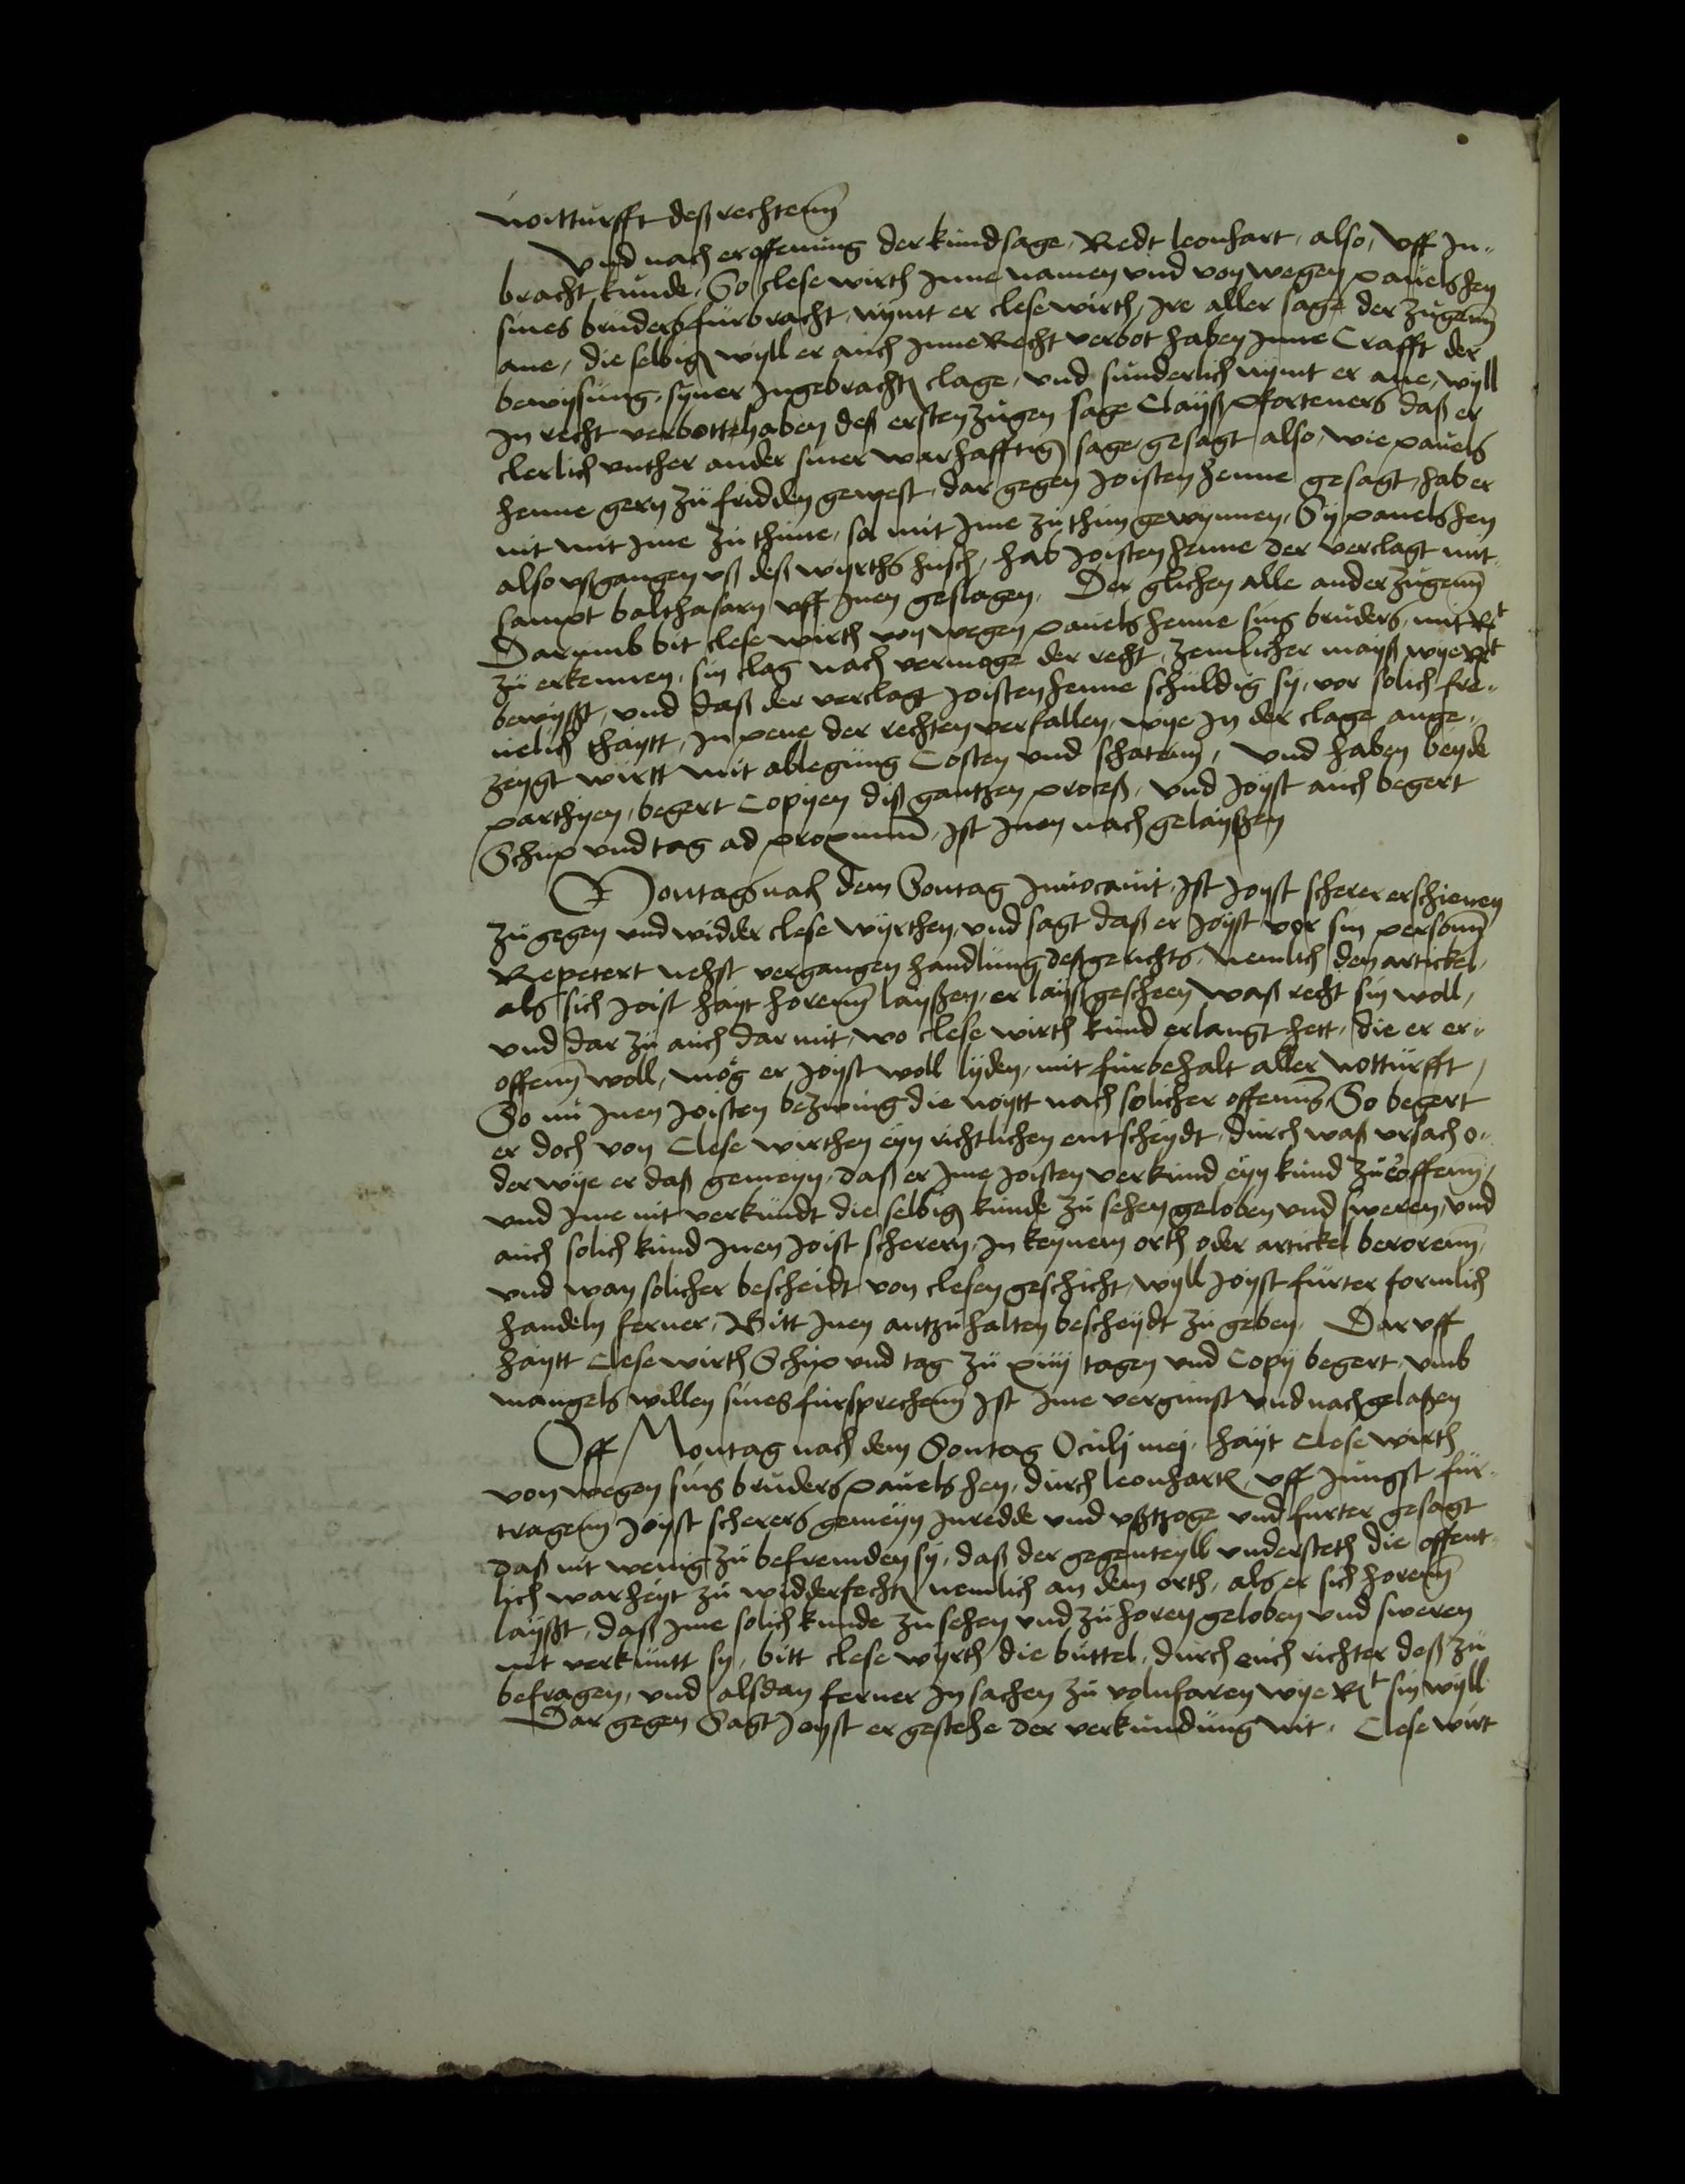 noitturfft deß rechtenn
Und nach eroffenung der kundsage, Redt leonhart, also, Uff In-
bracht kunde, So clese wirth Inne namen und von wegen pauels hen
sines bruders furbracht, nympt er clese wirth, Ire aller sage der zugenn
ane, die selbig wyll er auch Inne Recht verbot haben Inne Crafft der
bewysung, syner Ingebracht clage, und sunderlich nympt er ane, wyll
In recht verbotth haben deß ersten zugen sage Clayß pforteners daß er
clerlich unther ander siner warhafftig sage gesagt also, wie pauels
henne gern zu fridden gewest, dar gegen Joisten henne gesagt, hab er
nit mit Ime zu thune, so mit Ime zu thun gewynnen, Sy pauels hen
also ußgangen uß deß wyrths husch, hab Joisten henne der verclagt mit
sampt balthasarn uff Inen geslagen, Der glichen alle ander zugenn
Darumb bit clese wirth von wegen pauels henne sins bruders, mit Rt
zu erkennen, sin clag nach vermoge der recht, zemlicher mayß wye Rt
bewyßt, und daß der verclagt Joisten henne schuldig sy, vor solich fre-
nelich thaytt, In pene der rechten verfallen, wye In der clage ange-
zeygt wirtt mit ablegung Costen und schatenn, Und haben beyde
parthyen, begert Copyen diß gantzen proceß, und Joyst auch begert
Schup und tag ad proximum, Ist Inen nach gelayßen
Montags nach dem Sontag Invocavit, Ist Joyst scherer erschienen
zu gegen und widder clese wyrthen, und sagt daß er Joyst vor sin personn
Repetert nehst vergangen handlung deß gerichts, nemlich den artickel,
als sich Joist hayt horenn layßen, er layß gescheen waß recht sin woll,
und dar zu auch dar mit, wo clese wirth kund erlangt hett, die er er-
offenn woll, mög er Joyst woll lyden, mit furbehalt aller notturfft,
So nu Inen Joisten bezwing die noytt nach solicher offenung, So begert
er doch von Clese wirthen eyn richtlichen entscheydt, durch waß ursach o-
der wye er daß gemeyn, daß er Ime Joisten verkund eyn kund zu eroffenn,
und Ime nit verkundt die selbig kunde zu sehen geloben und sweren, und
auch solich kund Inen Joist scherern, In keynem orth oder artickel berorenn,
und wan solicher bescheidt von clesen geschicht, wyll Joyst furter formlich
handeln ferner, Bitt Inen antzuhalten bescheydt zu geben, Dar uff
haytt Clese wirth Schup und tag zu xiiij tagen und Copy begert, umb
mangels willen sines fursprechenn Ist Ime vergunst und nach gelaßen
Uff Montag nach dem Sontag Oculj mej, hayt Clese wirth
von wegen sins bruders pauels hen, durch leonhart, uff Jungst fur-
tragenn Joyst scherers gemeyn Inredde und ußtzoge und furter gesagt
daß nit wenig zu befremden sy, daß der gegenteyll understeth die offent-
lich warheyt zu widderfecht nemlich an dem orth, als er sich horenn
layßt, daß Ime solich kunde zu sehen und zu horen geloben und sweren
nit verkuntt sy, bitt clese wyrth die buttel, durch euch richter deß zu
befragen, und alsdan ferner In sachen zu volnfaren wye Rt sin wyll
Dar gegen Sagt Joyst er gestehe der verkundung nit, Clese wirt